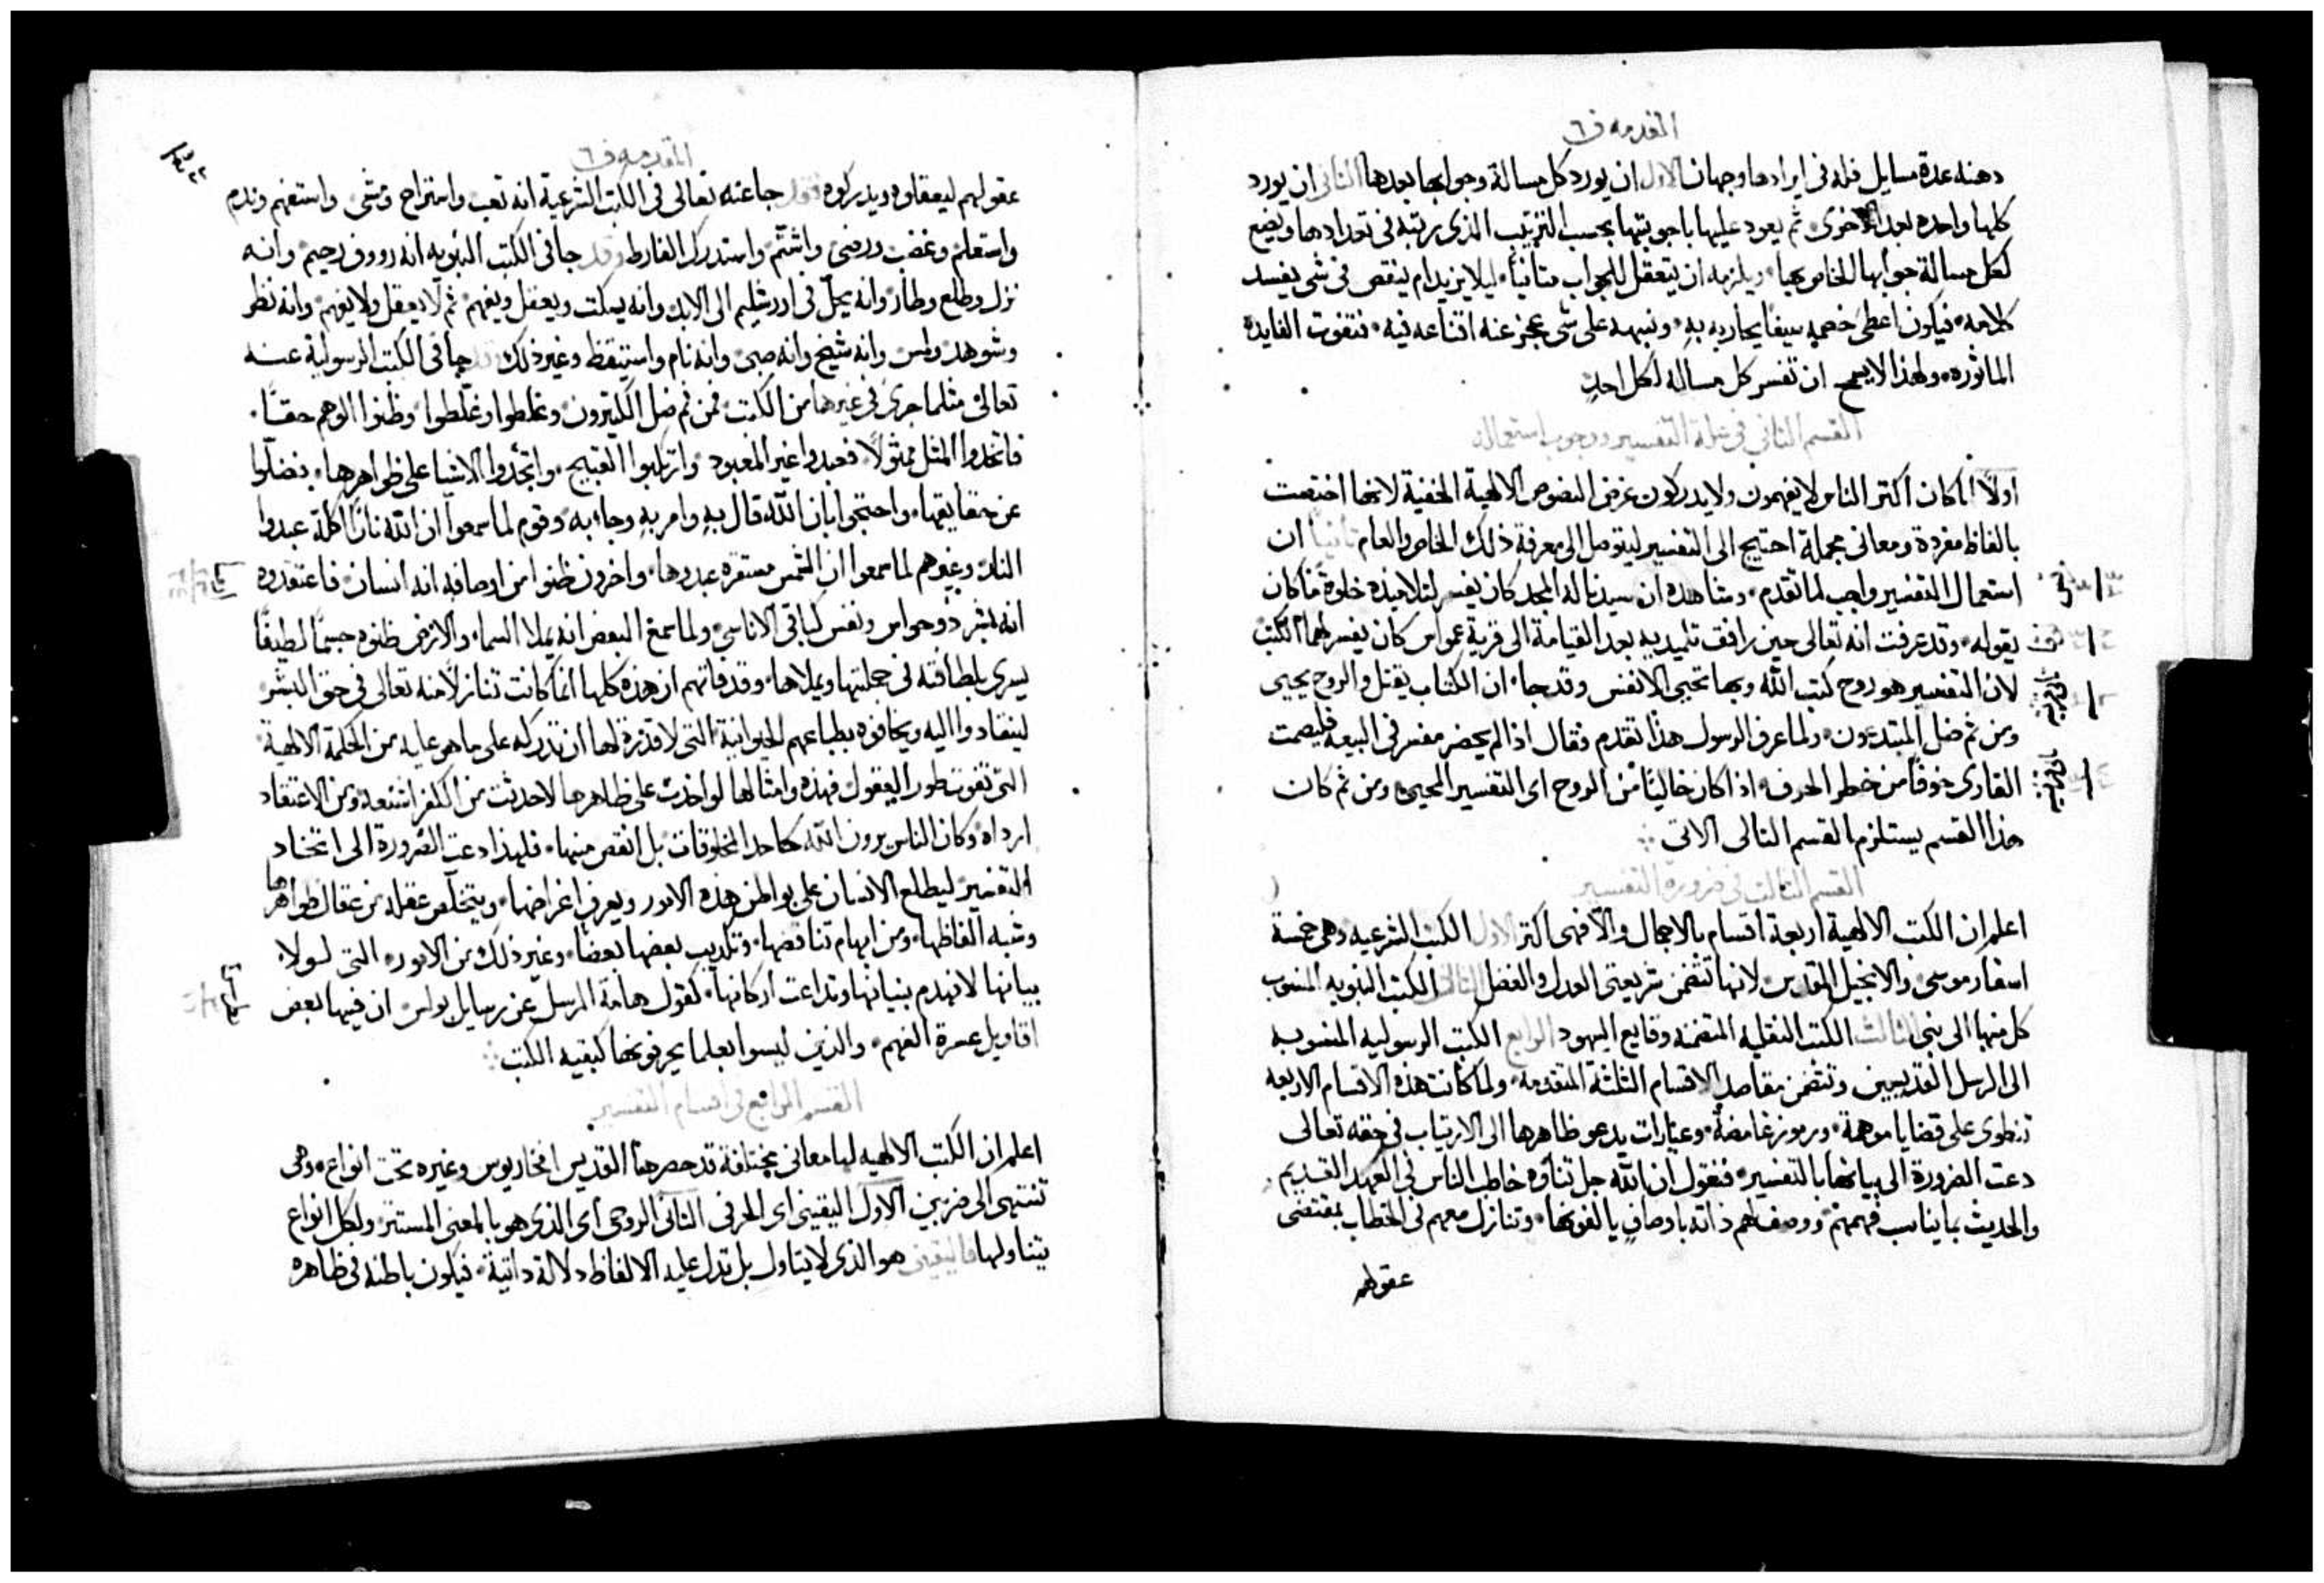 المقدمه ف٦
دهنه عدة مسايل فله فى ايرادها وجهان الاول ان يورد كل مسالة وجوابها بعدها الثانى ان يورد
كلها واحده بعد الاخرى ثم يعود عليها باجوبتها بحسب الترتيب الذى رتبه فى تعدادها ويضع
لكل مسالة جوابها الخاص بها ويلزمه ان يتعقل للجواب متانيا ليلا يزيد ام ينقص فى شى يفسد
كلامه فيكون اعطى خصمه سيفا يحاربه به ونبهه على شى عجز عنه اقناعه فيه فتفوت الفايدة
الماثوره ولهذا لا يصح ان تفسر كل مساله لكل احد
القسم الثانى فى علة التفسير ووجوب استعماله
اولا لما كان اكثر الناس لا يفهمون ولا يدركون غرض النصوص الالهية الخفية لانها اختصت
بالفاظ مفردة ومعانى مجملة احتيج الى التفسير ليتوصل الى معرفة ذلك الخاص والعام ثانيا ان
استعمال التفسير واجب لما تقدم ومشاهده ان سيدنا له المجد كان يفسر لتلاميذه خلوة ما كان
يقوله وقد عرفت انه تعالى حين رافق تلميذيه بعد القيامة الى قرية عمواس كان يفسر لهما الكتب
لان التفسير هو روح كتب الله وبها تحيى الانفس وقد جا ان الكتاب يقتل والروح يحيى
ومن ثم ضل المبتدعون ولما عرف الرسول هذا تقدم فقال اذا لم يحضر مفسر فى البيعه فليصمت
القارى خوفا من خطر الحرف اذا كان خاليا من الروح اى التفسير المحيى ومن ثم كان
هذا القسم يستلزم القسم التالى الاتى
القسم الثالث فى ضرورة التفسير
اعلم ان الكتب الالهية اربعة اقسام بالاجمال والا فهى اكثر الاول الكتب الشرعيه وهى خمسة
اسفار موسى والانجيل المقدس لانها تتضمن شريعتى العدل والفضل الثانى الكتب النبويه المنسوب
كل منها الى نبى الثالث الكتب النقليه المتضمنه وقايع اليهود الرابع الكتب الرسوليه المنسوبه
الى الرسل القديسين وتتضمن مقاصد الاقسام الثلثة المتقدمة ولما كانت هذه الاقسام الاربعه
تنطوى على قضايا موهمة ورموز غامضة وعبارات يدعو ظاهرها الى الارتياب فى حقه تعالى
دعت الضرورة الى بيانها بالتفسير فنقول ان الله جل ثناؤه خاطب الناس فى العهد القديم
والحديث بما يناسب فهمهم ووصف لهم ذاته باوصاف يالفونها وتنازل معهم فى الخطاب بمقتضى
عقولهم
المقدمه ف٦
عقولهم ليعقلوه ويدركوه فقد جا عنه تعالى فى الكتب الشرعية انه تعب واستراح ومشى واستفهم وندم
واستعلم وغضب ورضى واشتم واستدرك الفارط وقد جا فى الكتب النبويه انه رووف رحيم وانه
نزل وطلع وطار وانه يحل فى اورشليم الى الابد وانه يسكت ويعقل ويفهم ثم لا يعقل ولا يفهم وانه نظر
وشوهد ولمس وانه شيخ وانه صبى وانه نام واستيقظ وغير ذلك وقد جا فى الكتب الرسولية عنه
تعالى مثلما جرى فى غيرها من الكتب فمن ثم ضل الكثيرون وغلطوا وغلطوا وظنوا الوهم حقا
فاتخذوا المثل ممثولا فعبدوا غير المعبود وارتكبوا القبيح واتخذوا الاشيا على ظواهرها فضلوا
عن حقايقها واحتجوا بان الله قال به وامر به وجا به وقوم لما سمعوا ان الله نار اكلة عبدوا
النار وغيرهم لما سمعوا ان الشمس مستقره عبدوها واخرون ظنوا من اوصافه انه انسان فاعتقدوه
انه بشر ذو حواس ونفس كباقى الاناسى ولما سمع البعض انه يملا السما والارض ظنوه جسما لطيفا
يسرى بلطافته فى جملتها ويملاها وقد فاتهم ان هذه كلها انما كانت تنازلا منه تعالى فى حق البشر
لينقادوا اليه ويخافوه بطباعهم الحيوانية التى لا قدرة لها ان تدركه على ما هو عليه من الحكمة الالهية
التى تفوت طور العقول فهذه وامثالها لو اخذت على ظاهرها لاحدثت من الكفر اشنعه ومن الاعتقاد
ارداه وكان الناس يرون الله كاحد المخلوقات بل انقص منها فلهذا دعت الضرورة الى اتخاد
التفسير ليطلع الانسان على بواطن هذه الامور ويعرف اغراضها ويتخلص عقله من عقال ظواهرها
وشبه الفاظها ومن ايهام تناقضها وتكذيب بعضها بعضا وغير ذلك من الامور التى لولا
بيانها لانهدم بنيانها وتداعت اركانها كقول هامة الرسل عن رسايل بولس ان فيها بعض
اقاويل عسرة الفهم والذين ليسوا بعلما يحرفونها كبقيه الكتب
القسم الرابع فى اقسام التفسير
اعلم ان الكتب الالهيه لها معانى مختلفة قد حصرها القديس افخاريوس وغيره تحت انواع وهى
تنتهى الى ضربين الاول اليقينى اى الحرفى الثانى الروحى اى الذى هو بالمعنى المستتر ولكل انواع
يتناولها فاليقينى هو الذى لا يتاول بل تدل عليه الالفاظ دلالة ذاتية فيكون باطنه فى ظاهره